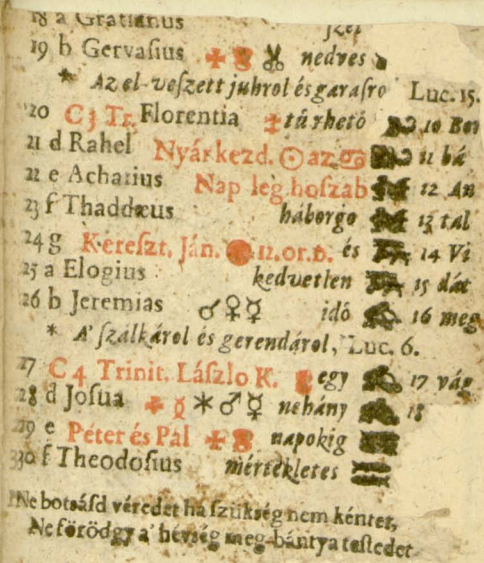 18 a Gratianus
19 b Gervaſius ✚ nedves
* Az el-veſzett juhrol és garaſro Luc. 15.
20 C 3 Tr. Florentia türhető 10
21 d Rahel Nyár kezd. ☉ az ♋ 11 bá
22 e Achatius Nap leg hoſzab 12 An
23 f Thaddæus háborgo 13 tal
24 g Kereſzt. Ján. 12. or. és 14 Vi
25 a Elogius kedvetlen 15 dát
26 b Jeremias ♂ ♀ ☿ idó 16 meg
* A' ſzálkárol és gerendárol, Luc. 6.
27 C 4 Trinit. Lászlo K. egy 17 vág
28 d Joſua ✚ ☿ ✶ ♂ ☿ nehány 18
29 e Péter és Pál ✚ napokig
30 f Theodoſius mértékletes
Ne botsásd véredet ha ſzükség nem kéntet,
Ne förödgy a' hévség meg-bántya teſtedet